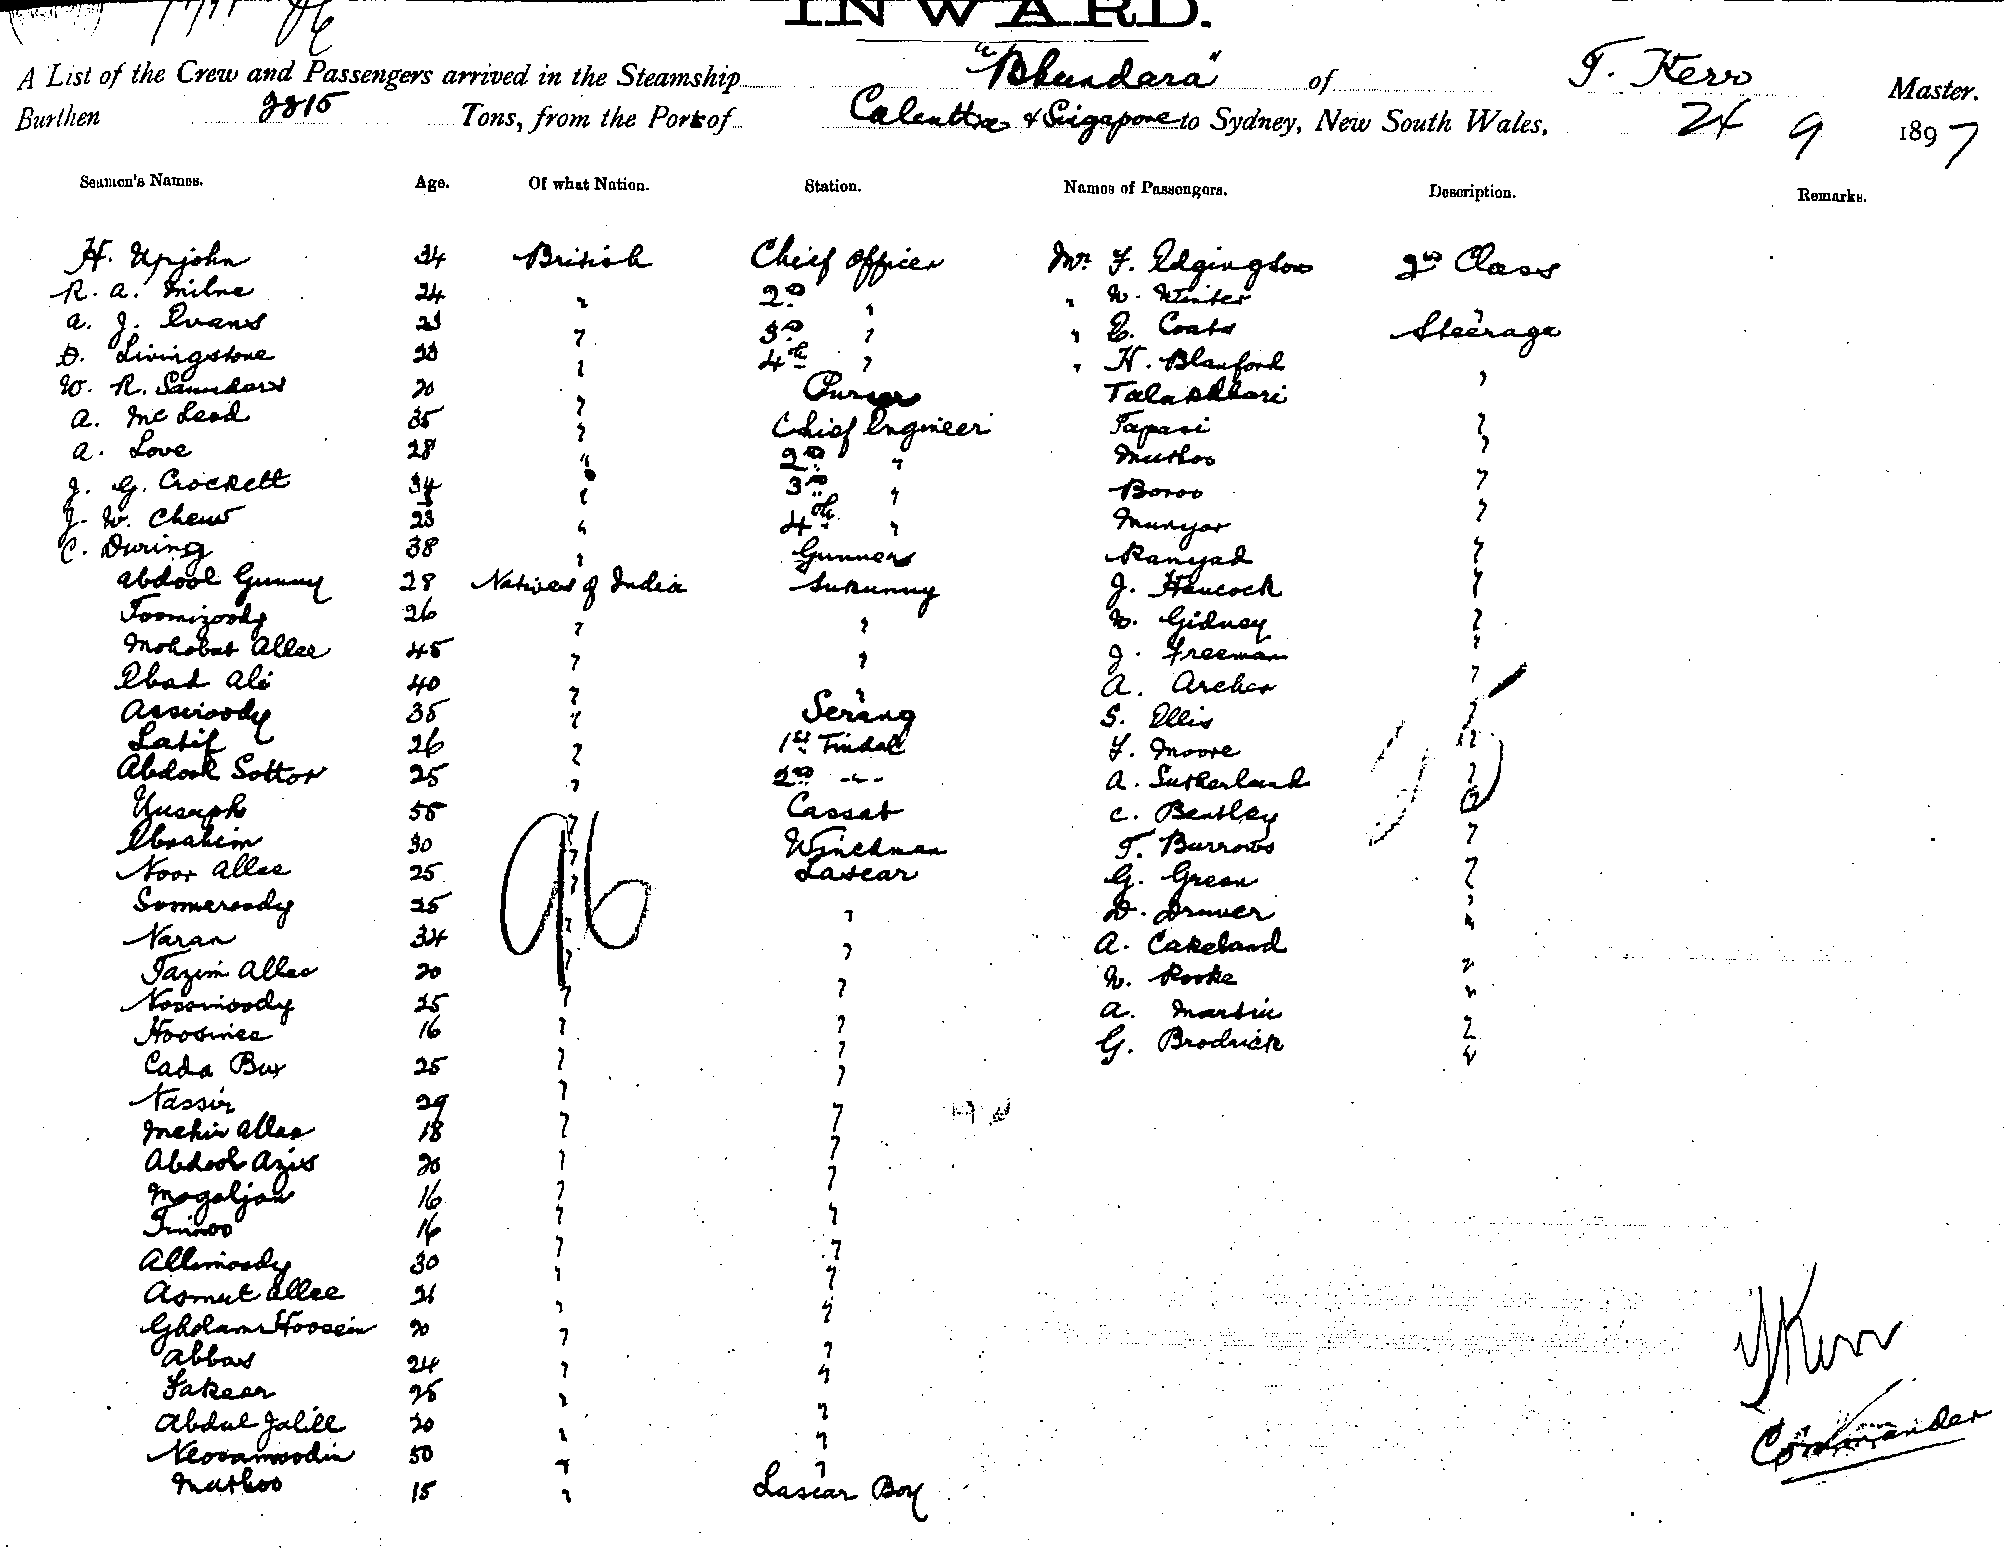 INWARD.
A List of the Crew and Passengers arrived in the Steamship "Bhundara" of T. Kerr Master.
Burthen 2815 Tons, from the Port of Calcutta & Singapore to Sydney, New South Wales, 24 9 1897
Seamen's Names. Age. Of what Nation. Station. Names of Passengers. Description. Remarks.
H. Upjohn 34 British Chief Officer Mr F. Edgington 2nd Class
R. A. Milne 24 " 2nd " " W. Winter "
A. J. Evans 23 " 3rd " " E. Coats Steerage
D. Livingstone 23 " 4th " " H. Blanford "
W. R. Saunders 20 " Purser
A. McLeod 35 " Chief Engineer Tapasi "
A. Love 28 " 2nd " Muthoo "
J. G. Crockett 34 " 3rd " Boroo "
J. W. Chew 23 " 4th " Munyar "
C. During 38 " Gunner Ranyad "
Abdool Gunny 28 Natives of India Sukunny J. Hancock "
Toomizoody 26 " " W. Gidney "
Mohobut Allee 45 " " J. Freeman "
Ebad Ali 40 " " A. Archer "
Asseroody 35 " Serang S. Ellis "
Latif 26 " 1st Tindal F. Moore "
Abdool Sottor 25 " 2nd -"- A. Sutherland "
Yusuph 55 " Cassab C. Bentley "
Ebrahim 30 " Winchman T. Burrows "
Noor Allee 25 " Lascar G. Green "
Sumeroody 25 " " D. Druver "
Naran 34 " " A. Cakeland "
Tazim Allee 20 " " W. Rooke "
Nossimoody 25 " " A. Martin "
Hoosinee 16 " " G. Brodrick "
Cada Bux 25 " "
Nassir 29 " "
Mehir Allee 18 " "
Abdool Azis 20 " "
Mogaljan 16 " "
Tinnoo 16 " "
Allimoody 30 " "
Asmut Allee 21 " "
Gholam Hoosein 20 " "
Abbas 24 " "
Fakeer 25 " "
Abdul Jalill 20 " "
50 " "
Muthoo 15 " Lascar Boy
96
T Kerr
Commander